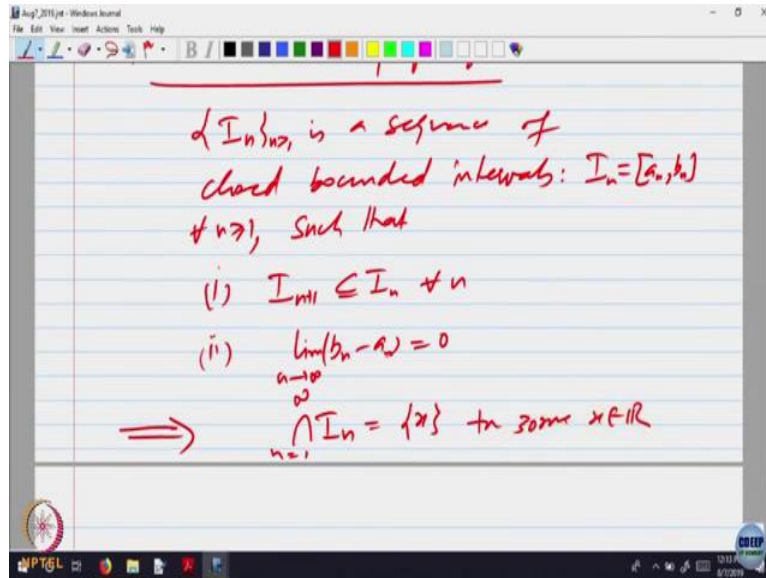 Aug7_2019.jnt - Windows Journal
File Edit View Insert Actions Tools Help
B I
{I_n}_{n≥1} is a sequence of
closed bounded intervals: I_n = [a_n, b_n]
∀ n≥1, such that
(i) I_{n+1} ⊆ I_n ∀ n
(ii) lim_{n→∞} (b_n - a_n) = 0
⟹ ⋂_{n=1}^{∞} I_n = {x} for some x∈ℝ
NPTEL
CDEEP
IIT BOMBAY
8/7/2019